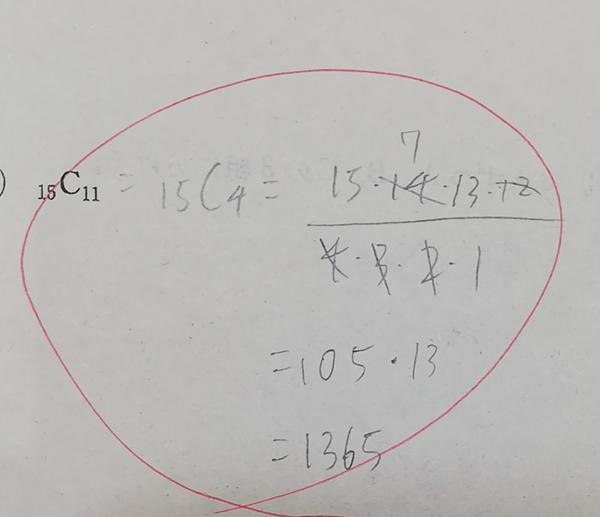 7
) ₁₅C₁₁ = ₁₅C₄ = 15·14·13·12
4·3·2·1
=105·13
=1365